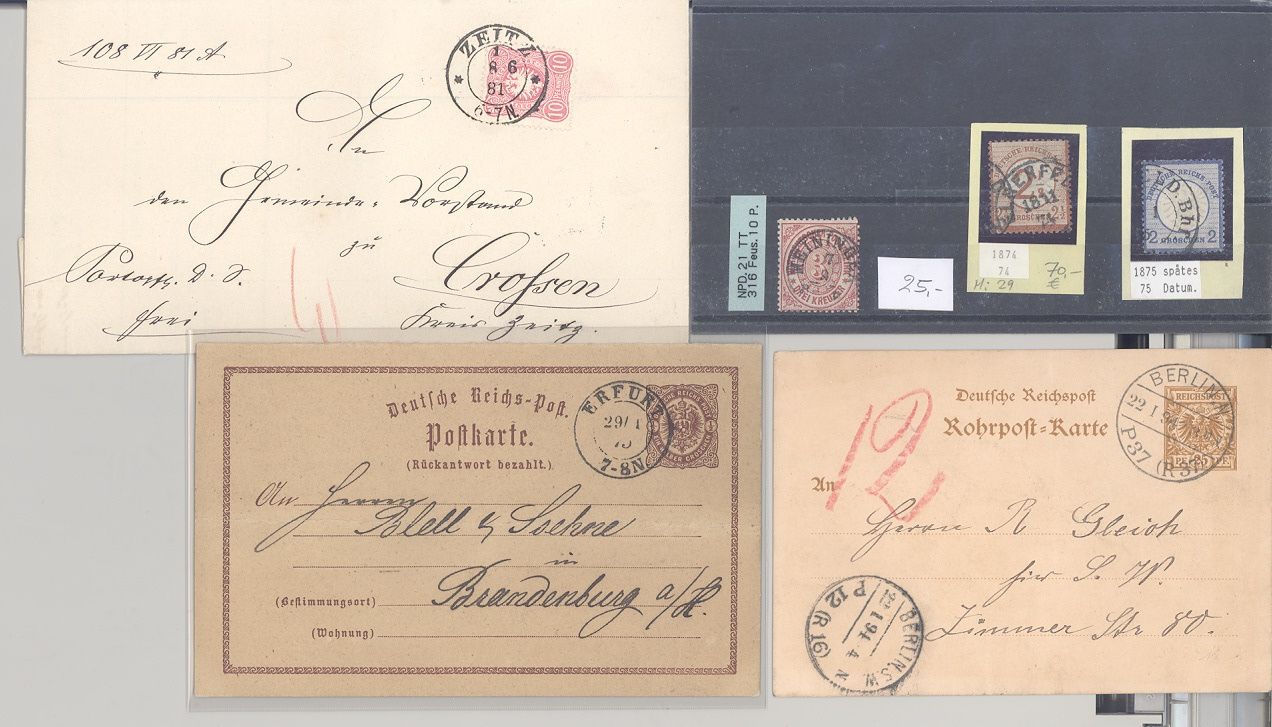 108 VI 81 A.
ZEITZ
1
8 6
81
6-7N.
10
10
An
den Gemeinde-Vorstand
zu
Crossen
Kreis Zeitz.
frei
NPD. 21 TT
316 Feus. 10 P.
MEININGEN
DREI KREUZER
25,-
DEUTSCHE REICHS-POST
GROSCHEN
1874
74
M: 29
70,-
€
DEUTSCHE REICHS-POST
D. Bhf
2 GROSCHEN 2
1875 spätes
75 Datum.
Deutsche Reichs-Post.
Postkarte.
(Rückantwort bezahlt.)
ERFURT
29/ 1
75
7-8N.
An Herren
Blell & Soehne
in
Brandenburg a/H.
(Bestimmungsort)
(Wohnung)
Deutsche Reichspost
Rohrpost-Karte
REICHSPOST
25
BERLIN
22 1 94
P37 (R37)
12
An
Herrn R Gleich
hier S. W.
Zimmer Str 80.
BERLIN S.W.
22 1 94 4 N
P 12 (R 19)